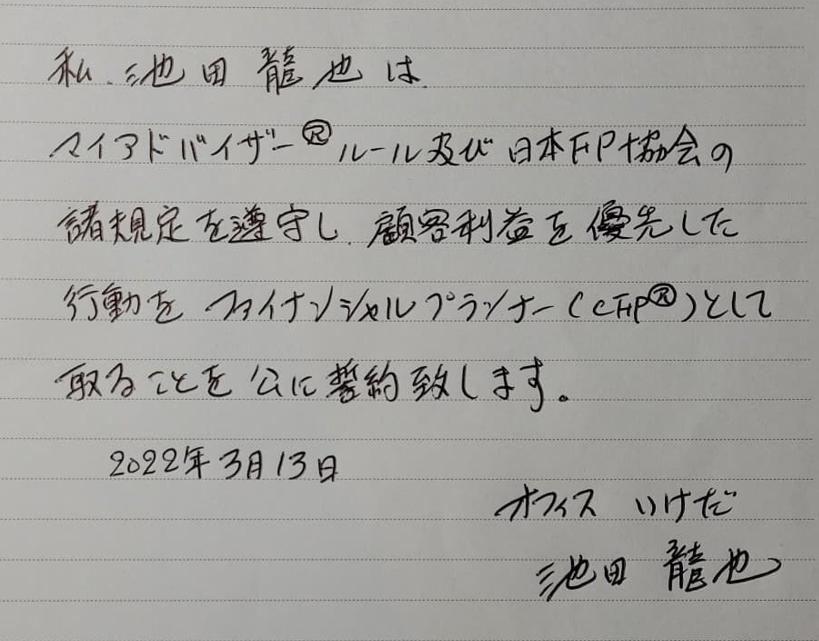 私、池田龍也は、
マイアドバイザー®ルール及び日本FP協会の
諸規定を遵守し、顧客利益を優先した
行動をファイナンシャルプランナー(CFP®)として
取ることを公に誓約致します。
2022年3月13日
オフィス いけだ
池田 龍也